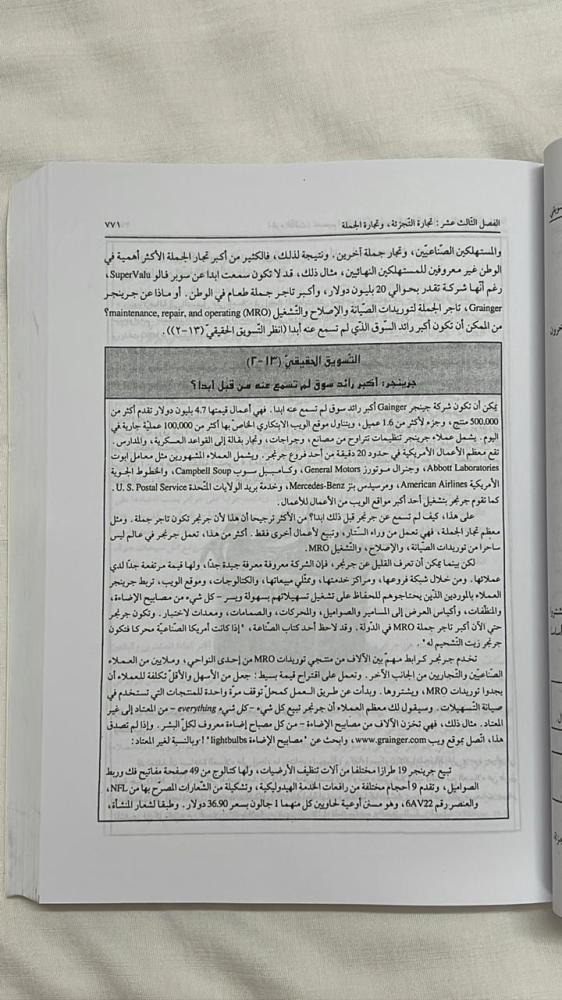 الفصل الثالث عشر: تجارة التجزئة، وتجارة الجملة ٧٧١
والمستهلكين الصّناعيّين، وتجار جملة آخرين. ونتيجة لذلك، فالكثير من أكبر تجار الجملة الأكثر أهمية في
الوطن غير معروفين للمستهلكين النهائيين، مثال ذلك، قد لا تكون سمعت ابدا عن سوبر فالو SuperValu،
رغم أنّها شركة تقدر بحوالي 20 بليون دولار، وأكبر تاجر جملة طعام في الوطن. أو ماذا عن جرينجر
Grainger، تاجر الجملة لتوريدات الصّيانة والإصلاح والتّشغيل maintenance, repair, and operating (MRO)؟
من الممكن أن تكون أكبر رائد السّوق الذي لم تسمع عنه أبدا (انظر التّسويق الحقيقي (١٣-٢)).
التّسويق الحقيقيّ (١٣-٢)
جرينجر: أكبر رائد سوق لم تسمع عنه من قبل ابدا؟
يمكن أن تكون شركة جينجر Gainger أكبر رائد سوق لم تسمع عنه ابدا. فهي أعمال قيمتها 4.7 بليون دولار تقدم أكثر من
500,000 منتج، وجزء لأكثر من 1.6 عميل، ويتناول موقع الويب الابتكاري الخاص بها أكثر من 100,000 عمليّة جارية في
اليوم. يشمل عملاء جرينجر تنظيمات تتراوح من مصانع، وجراجات، وتجار بقالة إلى القواعد العسكرية، والمدارس.
تقع معظم الأعمال الأمريكية في حدود 20 دقيقة من أحد فروع جرنجر. ويشمل العملاء المشهورين مثل معامل ابوت
Abbott Laboratories، وجنرال موتورز General Motors، وكـامـبـيـل سـوب Campbell Soup، والخطوط الجوية
الأمريكية American Airlines، ومرسيدس بنز Mercedes-Benz، وخدمة بريد الولايات المتّحدة U. S. Postal Service.
كما تقوم جرنجر بتشغيل أحد أكبر مواقع الويب من الأعمال للأعمال.
على هذا، كيف لم تسمع عن جرنجر قبل ذلك ابدا؟ من الأكثر ترجيحا أن هذا لأن جرنجر تكون تاجر جملة. ومثل
معظم تجار الجملة، فهي تعمل من وراء السّتار، وتبيع لأعمال أخرى فقط. أكثر من هذا، تعمل جرنجر في عالم ليس
ساحرا من توريدات الصّيانة، والإصلاح، والتّشغيل MRO.
لكن بينما يمكن أن تعرف القليل عن جرنجر، فإن الشركة معروفة معرفة جيدة جدًا، ولها قيمة مرتفعة جدًا لدي
عملائها. ومن خلال شبكة فروعها، ومراكز خدمتها، وممثّلي مبيعاتها، والكتالوجات، وموقع الويب، تربط جرينجر
العملاء بالموردين الذين يحتاجوهم للحفاظ على تشغيل تسهيلاتهم بسهولة ويسر – كل شيء من مصابيح الإضاءة،
والمنظّفات، وأكياس العرض إلى المسامير والصواميل، والمحركات، والصمامات، ومعدات لاختبار. وتكون جرنجر
حتي الآن أكبر تاجر جملة MRO في الدّولة. وقد لاحظ أحد كتاب الصّناعة، "إذا كانت أمريكا الصّناعيّة محركا فتكون
جرنجر زيت التّشحيم له".
تخـدم جرنجر كرابط مـهـمّ بين الآلاف من منتـجي توريدات MRO من إحدى النواحي، ومـلايين من العـمـلاء
الصّناعيّين والتّجاريين من الجانب الآخر. وتعمل على اقتراح قيمة بسيط: جعل من الأسهل والأقلّ تكلفة للعملاء أن
يجدوا توريدات MRO، ويشتروها. وبدأت عن طريق العمل كمحلّ توقف مرّة واحدة للمنتجات التي تستخدم في
صيانة التّسهيلات. وسيقول لك معظم العملاء أن جرنجر تبيع كل شيء – كل شيء everything – من المعتاد إلى غير
المعتاد. مثال ذلك، فهي تخزن الآلاف من مصابيح الإضاءة – من كل مصباح إضاءة معروف لكلّ البشر. وإذا لم تصدق
هذا، اتصل بموقع ويب www.grainger.com، وابحث عن "مصابيح الإضاءة lightbulbs"! وبالنسبة لغير المعتاد:
تبيع جرينجر 19 طرازا مختلفا من آلات تنظيف الأرضيات، ولها كتالوج من 49 صفحة مفاتيح فك وربط
الصواميل، وتقدم 9 أحجام مختلفة من رافعات الخدمة الهيدوليكية، وتشكيلة من الشّعارات المصرّح بها من NFL،
والعنصر رقم 6AV22، وهو مسن أوعية لحاويين كل منهما 1 جالون بسعر 36.90 دولار. وطبقا لشعار المنشأة،